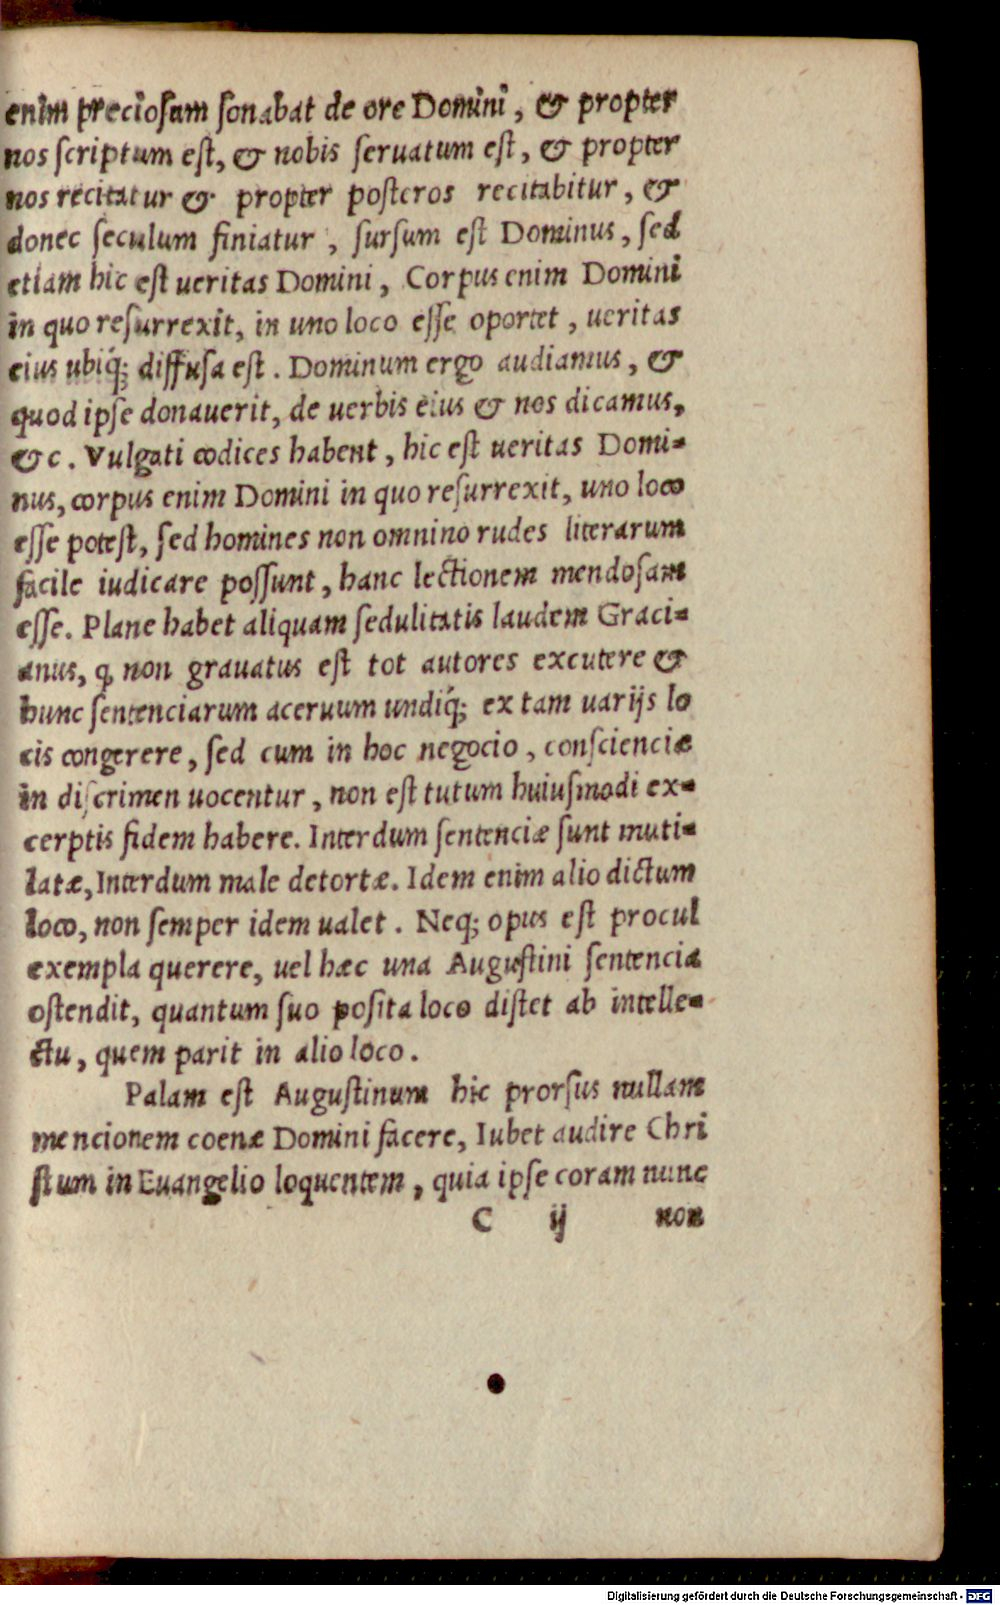 enim preciosum sonabat de ore Domini, & propter
nos scriptum est, & nobis seruatum est, & propter
nos recitatur & propter posteros recitabitur, &
donec seculum finiatur, sursum est Dominus, sed
etiam hic est ueritas Domini, Corpus enim Domini
in quo resurrexit, in uno loco esse oportet, ueritas
eius ubiq́; diffusa est. Dominum ergo audiamus, &
quod ipse donauerit, de uerbis eius & nos dicamus,
&c. Vulgati codices habent, hic est ueritas Domi=
nus, corpus enim Domini in quo resurrexit, uno loco
esse potest, sed homines non omnino rudes literarum
facile iudicare possunt, hanc lectionem mendosam
esse. Plane habet aliquam sedulitatis laudem Graci=
anus, q̨ non grauatus est tot autores excutere &
hunc sentenciarum aceruum undiq́; ex tam uarijs lo
cis congerere, sed cum in hoc negocio, conscienciæ
in discrimen uocentur, non est tutum huiusmodi ex=
cerptis fidem habere. Interdum sentenciæ sunt muti=
latæ, Interdum male detortæ. Idem enim alio dictum
loco, non semper idem ualet. Neq; opus est procul
exempla querere, uel hæc una Augustini sentencia
ostendit, quantum suo posita loco distet ab intelle=
ctu, quem parit in alio loco.
Palam est Augustinum hic prorsus nullam
mencionem coenæ Domini facere, Iubet audire Chri
stum in Euangelio loquentem, quia ipse coram nunc
C ij non
Digitalisierung gefördert durch die Deutsche Forschungsgemeinschaft - DFG